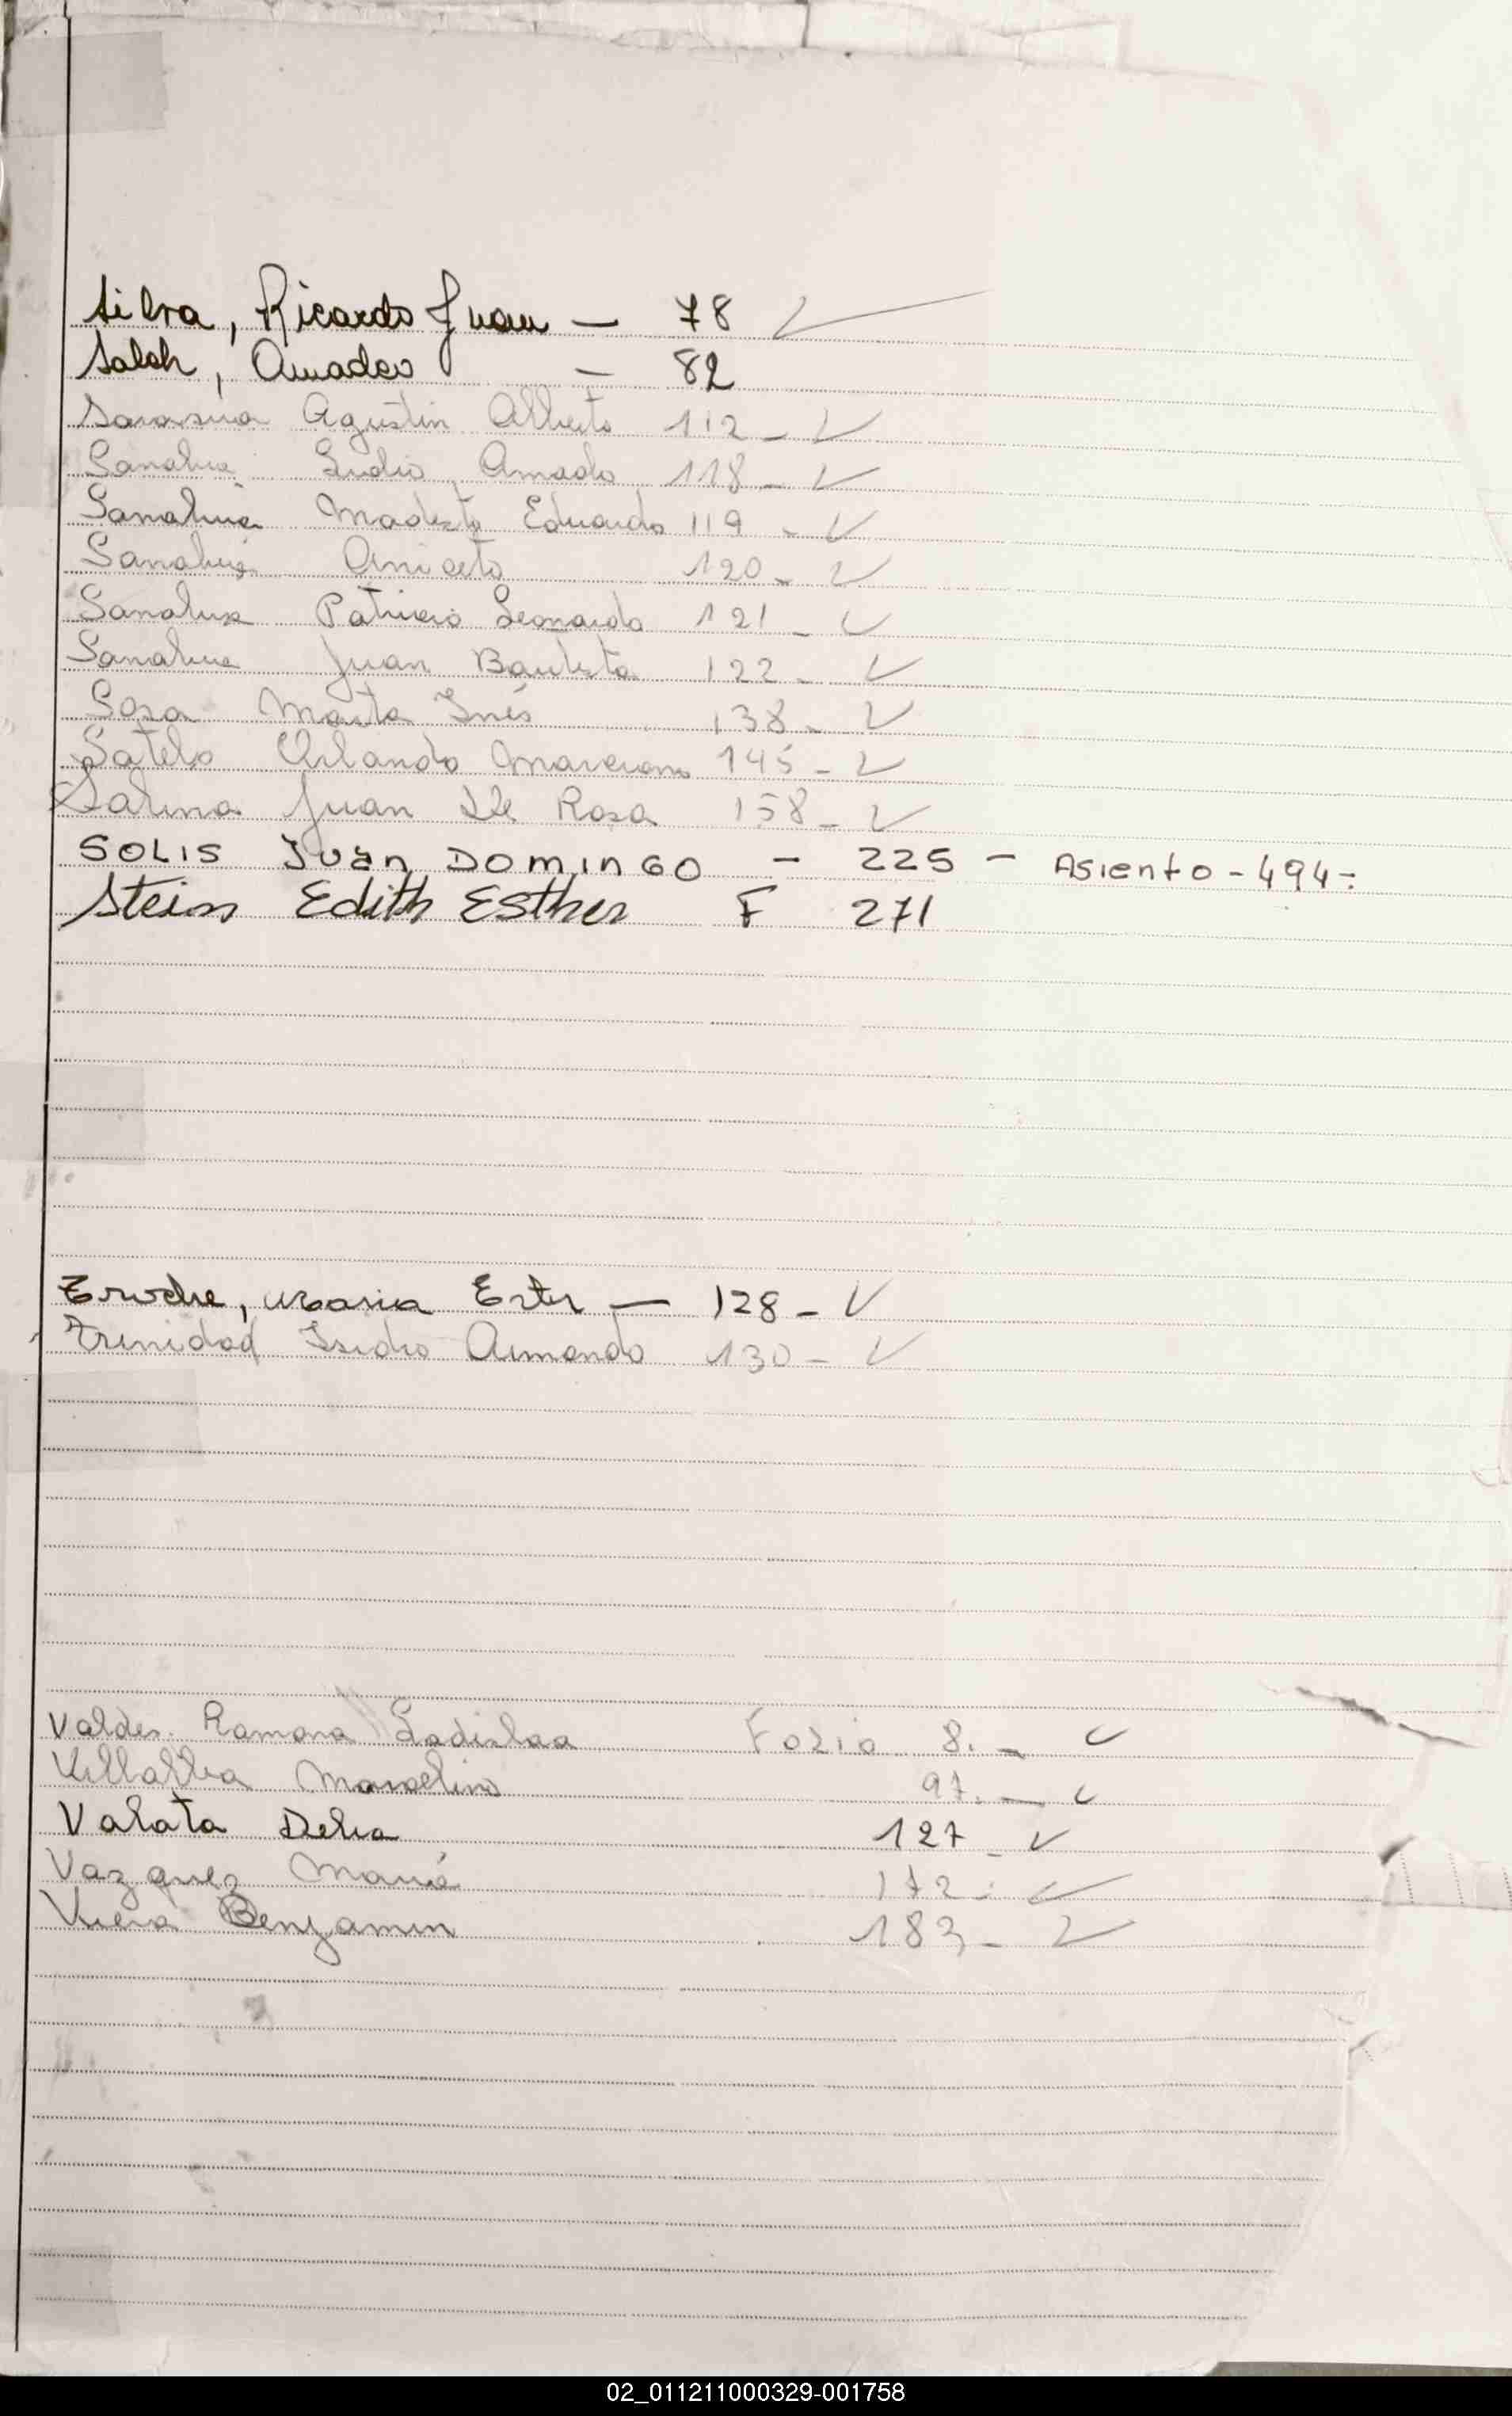 Silva, Ricardo Juan — 78 ✓
Saleh, Amadeo — 82
Agustin Alberto 112 - ✓
Sanabria Ludio Amado 118 - ✓
Sanabria Modesto Eduardo 119 - ✓
Sanabria Aniceto 120 - ✓
Sanabria Patricio Leonardo 121 - ✓
Sanabria Juan Bautista 122 - ✓
Sosa Marta Inés 138 - ✓
Sotelo Orlando Marciano 145 - ✓
Salina Juan De Rosa 158 - ✓
SOLIS JUan DOMINGO - 225 - Asiento - 494 -
Stein Edith Esther F 271
Troche, Maria Ester — 128 - ✓
Trinidad Isidro Armando 130 - ✓
Valdes Ramona Ladislaa Folio 8. - ✓
Villalba Marcelino 97. — ✓
Valata Delia 127 - ✓
Vazquez María 172 - ✓
Viera Benjamin 183 - ✓
02_011211000329-001758